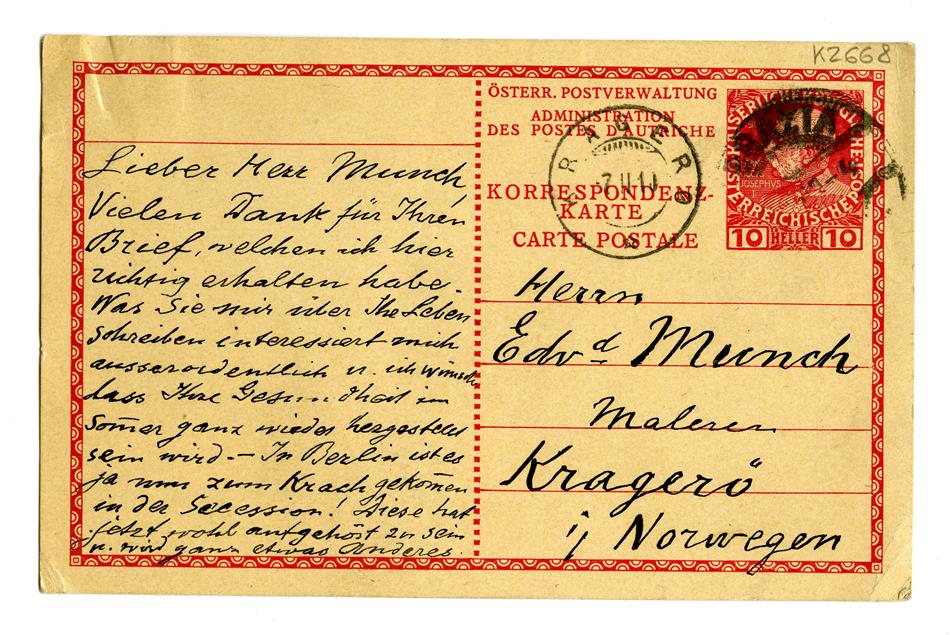 K2668
ÖSTERR. POSTVERWALTUNG
ADMINISTRATION
DES POSTES D'AUTRICHE
KORRESPONDENZ-
KARTE
CARTE POSTALE
KRAGERØ
7 II 10
JOSEPHVS
ÖSTERREICHISCHE POST
10 HELLER 10
Lieber Herr Munch
Vielen Dank für Ihren
Brief, welchen ich hier
richtig erhalten habe.
Was Sie mir über Ihr Leben
schreiben interessiert mich
ausserordentlich u. ich wünsche
dass Ihre Gesundheit im
Som̄er ganz wieder hergestellt
sein wird. – In Berlin ist es
ja nun zum Krach gekom̄en
in der Secession! Diese hat
jetzt wohl aufgehört zu sein
u. wird ganz etwas Anderes.
Herrn
Edvd Munch
Maleren
Kragerö
i Norwegen